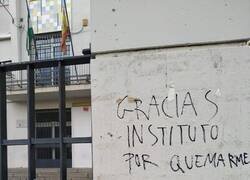 GRACIAS
INSTITUTO
POR QUEMARME